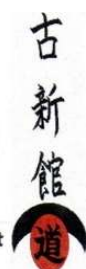 古新館
道